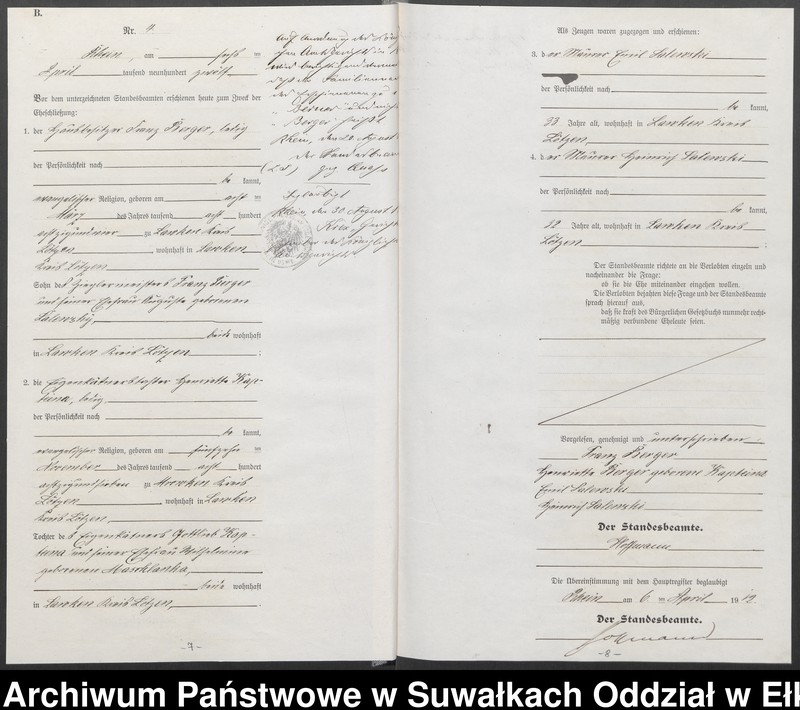 B.
Nr. 4.
Rhein, am sechs ten
April tausend neunhundert zwölf
Vor dem unterzeichneten Standesbeamten erschienen heute zum Zweck der
Eheschließung:
1. der Hausbesitzer Franz Berger, ledig
der Persönlichkeit nach
be kannt,
evangelischer Religion, geboren am acht ten
März des Jahres tausend acht hundert
achtzig und zu Lawken Kreis
Lötzen, wohnhaft in Lawken
Kreis Lötzen
Sohn des Zieglermeisters Franz Berger
und seiner Ehefrau Auguste geborenen
Salewsky,
beide wohnhaft
in Lawken Kreis Lötzen ;
2. die Eigenkätnerstochter Henriette Kap-
tuina, ledig
der Persönlichkeit nach
be kannt,
evangelischer Religion, geboren am fünfzehn ten
November des Jahres tausend acht hundert
achtzig und sieben zu Lawken Kreis
Lötzen, wohnhaft in Lawken
Kreis Lötzen
Tochter des Eigenkätners Gottlieb Kap-
tuina und seiner Ehefrau Wilhelmine
geborenen Masklanka,
beide wohnhaft
in Lawken Kreis Lötzen,
- 7 -
Auf Anordnung des
wird berichtigend
daß der Familienname
der Erschienenen zu 1
"Berner" und nicht
"Berger" heißt.
Rhein, den 20 August
Der Standesbeamte
(L.S.) gez.
Beglaubigt
Rhein, den 30 August
des Königlichen
Amtsgerichts
Als Zeugen waren zugezogen und erschienen:
3. der Maurer Emil Salewski
der Persönlichkeit nach
be kannt,
33 Jahre alt, wohnhaft in Lawken Kreis
Lötzen
4. der Maurer Heinrich Salewski
der Persönlichkeit nach
be kannt,
32 Jahre alt, wohnhaft in Lawken Kreis
Lötzen ;
Der Standesbeamte richtete an die Verlobten einzeln und
nacheinander die Frage:
ob sie die Ehe miteinander eingehen wollen.
Die Verlobten bejahten diese Frage und der Standesbeamte
sprach hierauf aus,
daß sie kraft des Bürgerlichen Gesetzbuchs nunmehr recht-
mäßig verbundene Eheleute seien.
Vorgelesen, genehmigt und unterschrieben
Franz Berger
Henriette Berger geborene Kaptuina
Emil Salewski
Heinrich Salewski
Der Standesbeamte.
Hoffmann
Die Übereinstimmung mit dem Hauptregister beglaubigt
Rhein am 6. ten April 19 12
Der Standesbeamte.
Hoffmann
- 8 -
Archiwum Państwowe w Suwałkach Oddział w Ełk